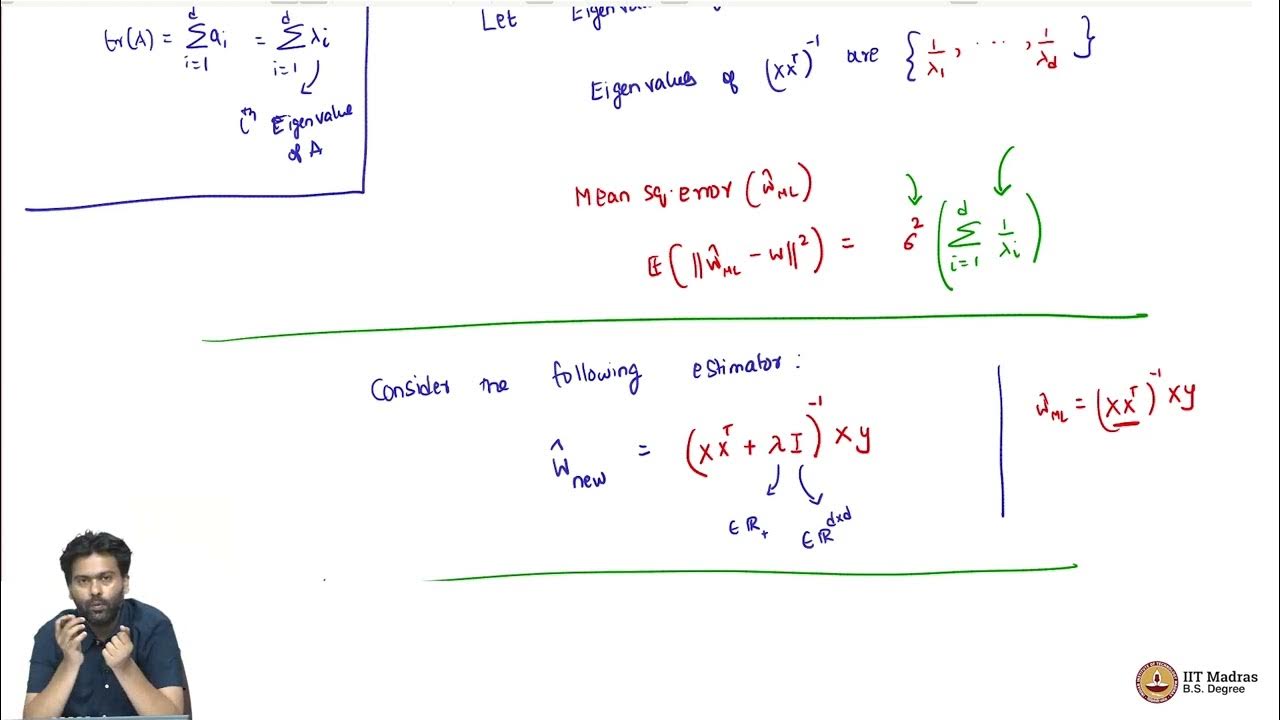 tr(A) = Σ_{i=1}^{d} a_i = Σ_{i=1}^{d} λ_i
i^th Eigenvalue
of A
Let
Eigenvalues of (XX^T)^{-1} are {1/λ_1, ⋯, 1/λ_d}
Mean sq. error (ŵ_ML)
E(||ŵ_ML - w||²) = σ² (Σ_{i=1}^{d} 1/λ_i)
Consider the following estimator:
ŵ_new = (XX^T + λI)^{-1} Xy
∈ R_+
∈ R^{d×d}
ŵ_ML = (XX^T)^{-1} Xy
IIT Madras
B.S. Degree